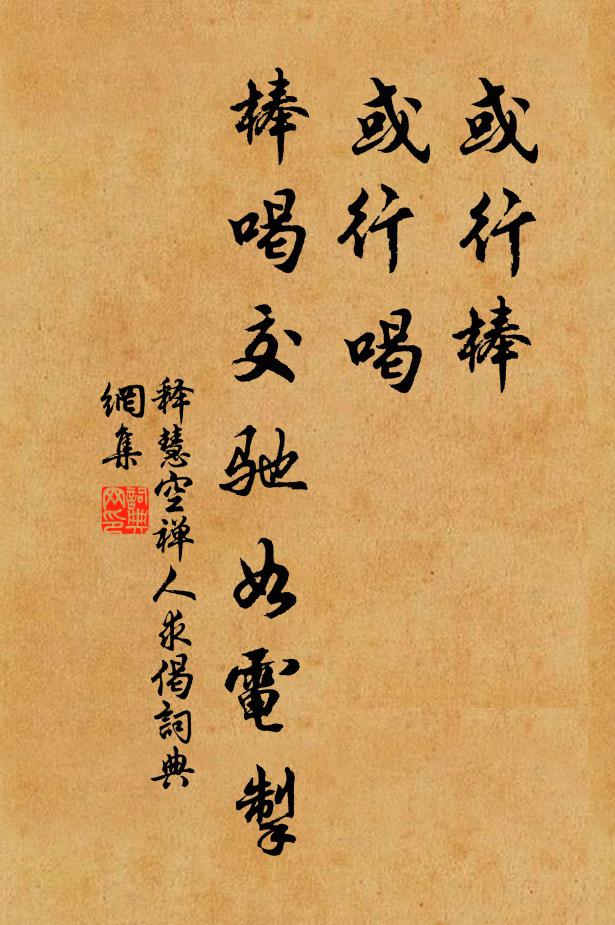 或行棒
或行喝
棒喝交驰如電掣
释慧空禅人求偈詞典
網集
詞典
网印